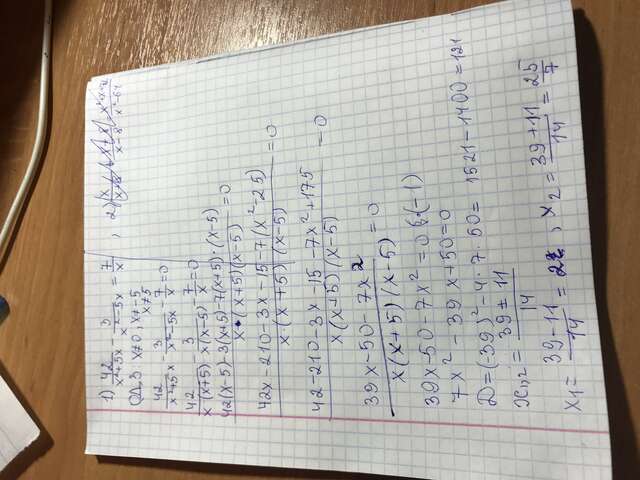 1) 42/(x²+5x) - 3/(x²-5x) = 7/x , 2)
ОДЗ x≠0, x≠-5
x≠5
42/(x²+5x) - 3/(x²-5x) - 7/x = 0
42/(x(x+5)) - 3/(x(x-5)) - 7/x = 0
(42(x-5)-3(x+5)-7(x+5)·(x-5))/(x·(x+5)(x-5)) = 0
(42x-210-3x-15-7(x²-25))/(x·(x+5)(x-5)) = 0
(42-210-3x-15-7x²+175)/(x(x+5)(x-5)) = 0
(39x-50-7x²)/(x(x+5)(x-5)) = 0
39x-50-7x²=0 |:(-1)
7x²-39x+50=0
D=(-39)²-4·7·50= 1521-1400=121
x1,2 = (39±11)/14
x1 = (39-11)/14 = 2, x2 = (39+11)/14 = 25/7